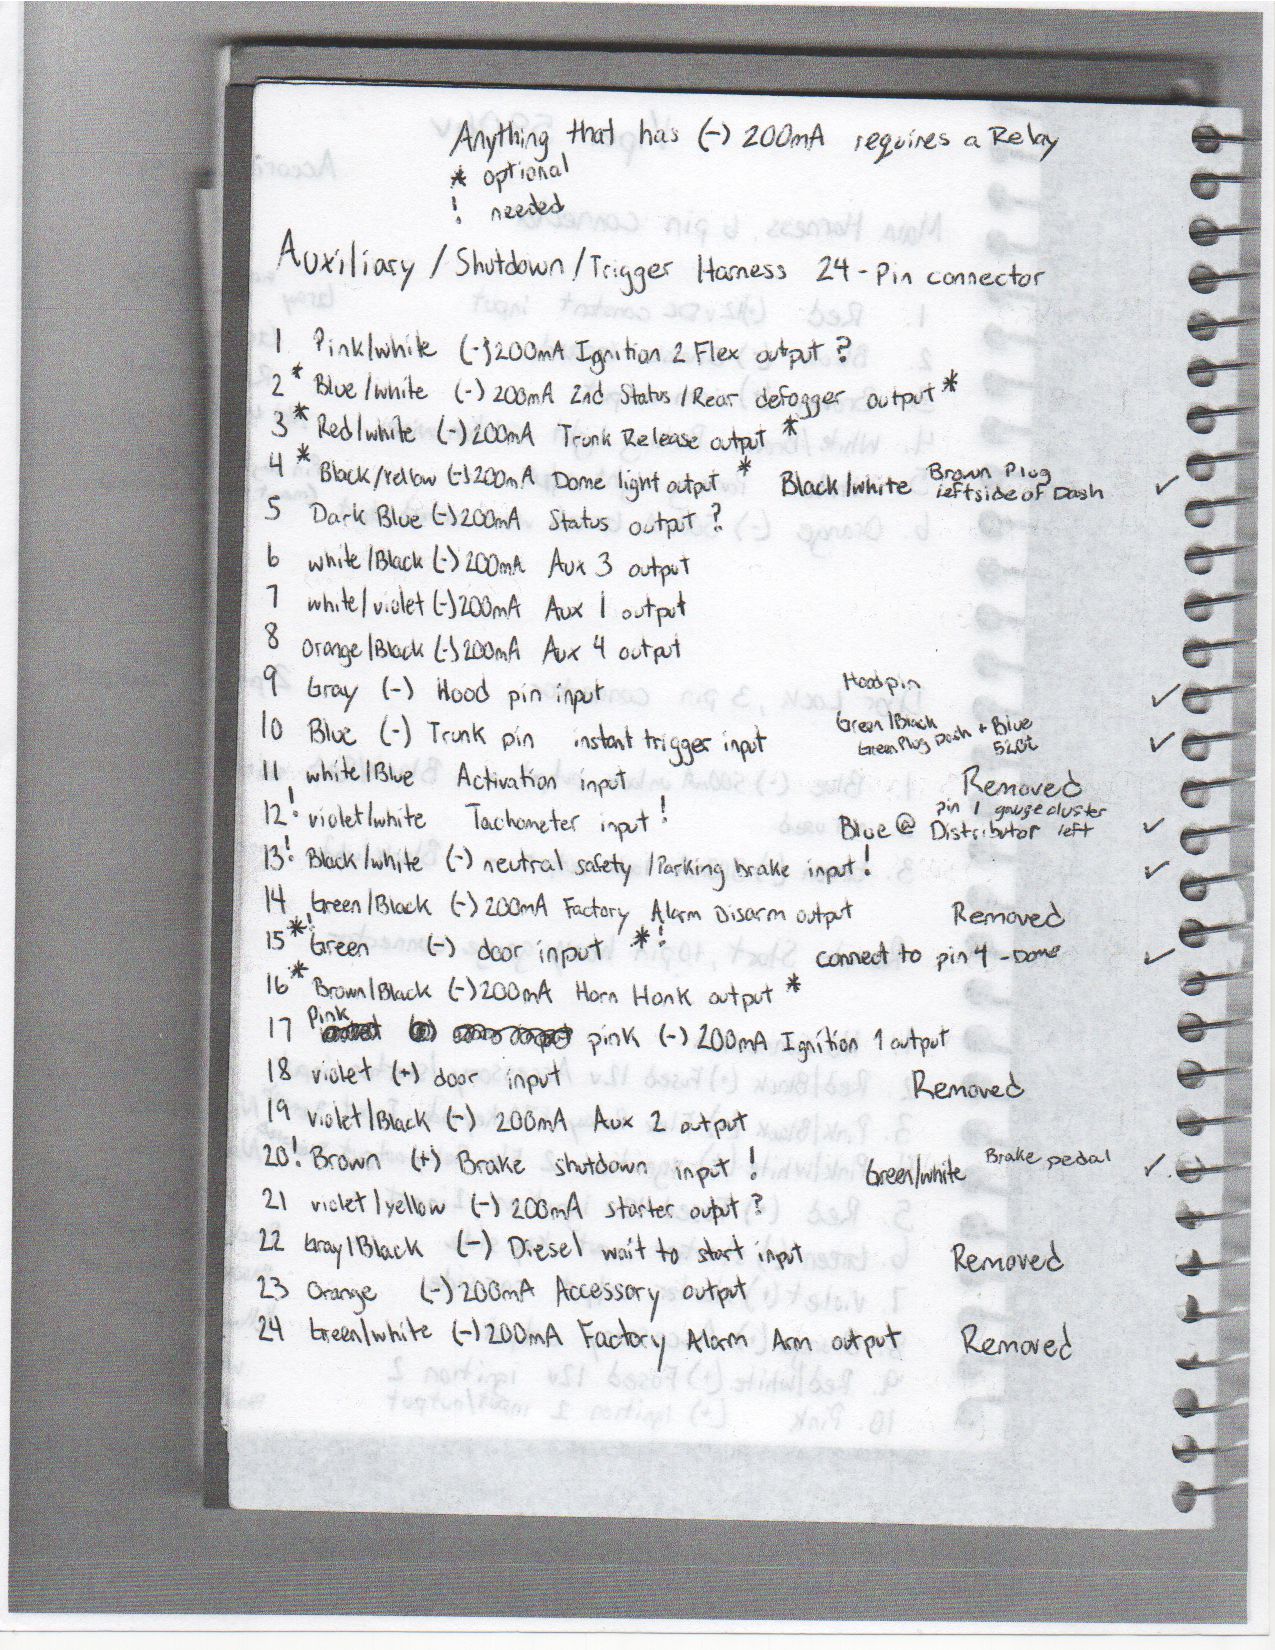 Anything that has (-) 200mA requires a Relay
* optional
! needed
Auxiliary / Shutdown / Trigger Harness 24-Pin connector
1 Pink/white (-) 200mA Ignition 2 Flex output ?
2* Blue/white (-) 200mA 2nd Status / Rear defogger output *
3* Red/white (-) 200mA Trunk Release output *
4* Black/Yellow (-) 200mA Dome light output * Black/white Brown Plug left side of Dash ✓
5 Dark Blue (-) 200mA Status output ?
6 white/Black (-) 200mA Aux 3 output
7 white/violet (-) 200mA Aux 1 output
8 orange/Black (-) 200mA Aux 4 output
9 Gray (-) Hood pin input Hood pin ✓
10 Blue (-) Trunk pin instant trigger input Green/Black Green Plug Dash + Blue ✓
11 white/Blue Activation input Removed
12! violet/white Tachometer input ! Blue @ Distributor pin 1 gauge cluster left ✓
13! Black/white (-) neutral safety / Parking brake input ! ✓
14 Green/Black (-) 200mA Factory Alarm Disarm output Removed
15*! Green (-) door input *! connect to pin 4 - Dome ✓
16* Brown/Black (-) 200mA Horn Honk output *
17 Pink pink (-) 200mA Ignition 1 output
18 violet (+) door input Removed
19 violet/Black (-) 200mA Aux 2 output
20! Brown (+) Brake shutdown input ! Green/white Brake pedal ✓
21 violet/yellow (-) 200mA starter output ?
22 Gray/Black (-) Diesel wait to start input Removed
23 Orange (-) 200mA Accessory output
24 Green/white (-) 200mA Factory Alarm Arm output Removed